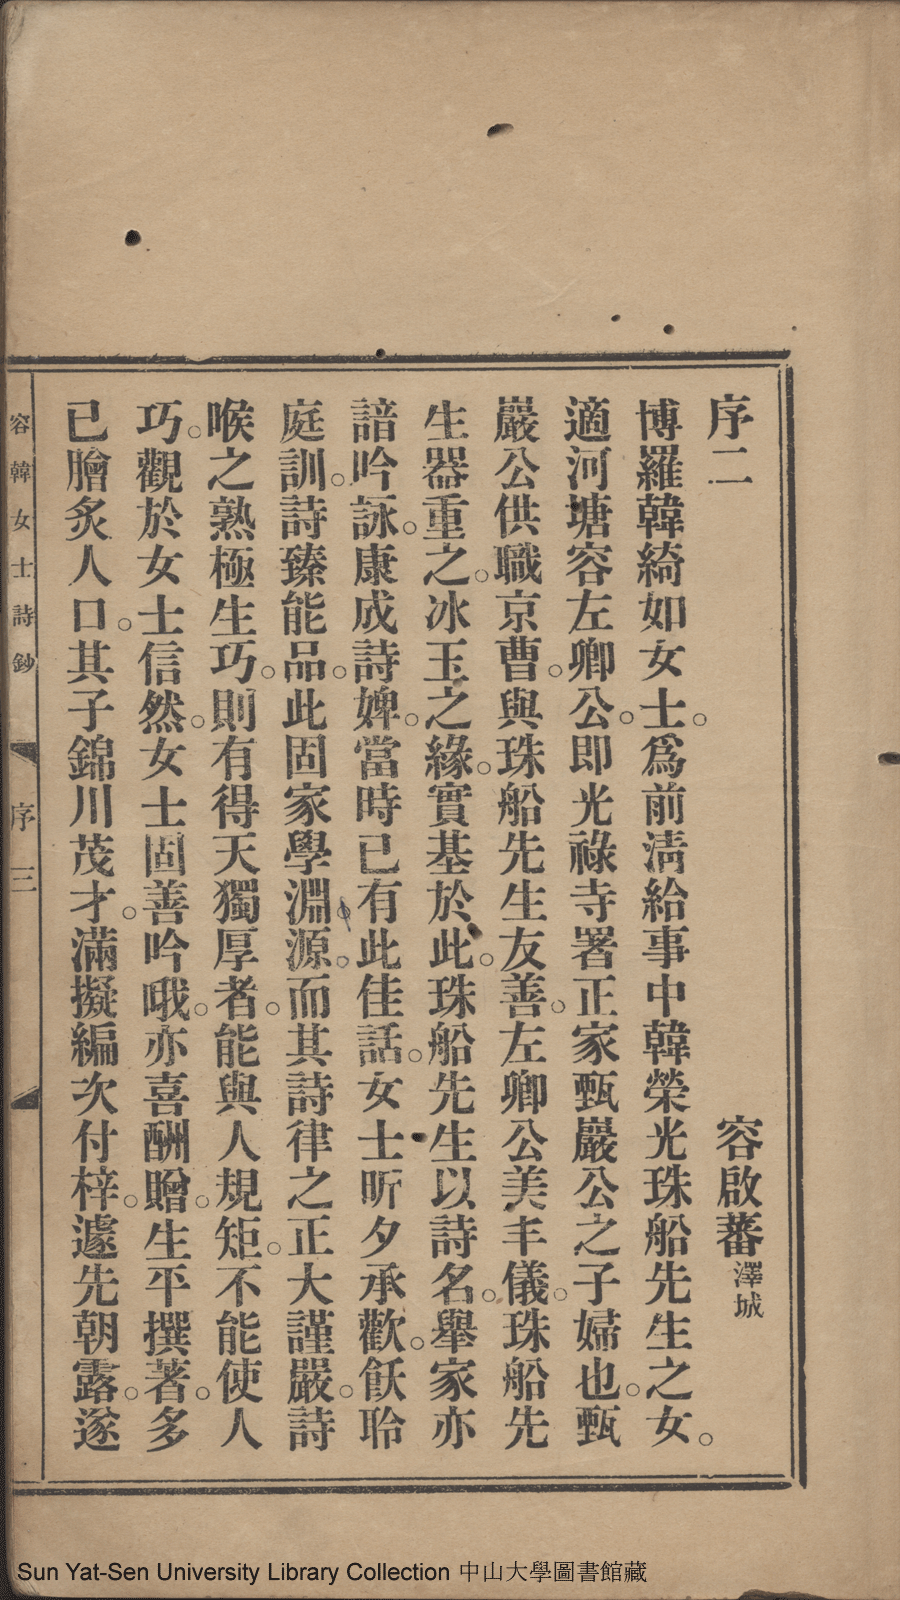 序二
容啟蕃澤城
博羅韓綺如女士。爲前淸給事中韓榮光珠船先生之女。
適河塘容左卿公。即光祿寺署正家甄嚴公之子婦也。甄
嚴公供職京曹。與珠船先生友善。左卿公美丰儀。珠船先
生器重之。冰玉之緣。實基於此。珠船先生以詩名。舉家亦
諳吟詠。康成詩婢。當時已有此佳話。女士昕夕承歡。飫聆
庭訓。詩臻能品。此固家學淵源。而其詩律之正大謹嚴。詩
喉之熟極生巧。則有得天獨厚者。能與人規矩。不能使人
巧。觀於女士信然。女士固善吟哦。亦喜酬贈。生平撰著。多
已膾炙人口。其子錦川茂才。滿擬編次付梓。遽先朝露。遂
容韓女士詩鈔
序
三
Sun Yat-Sen University Library Collection 中山大學圖書館藏